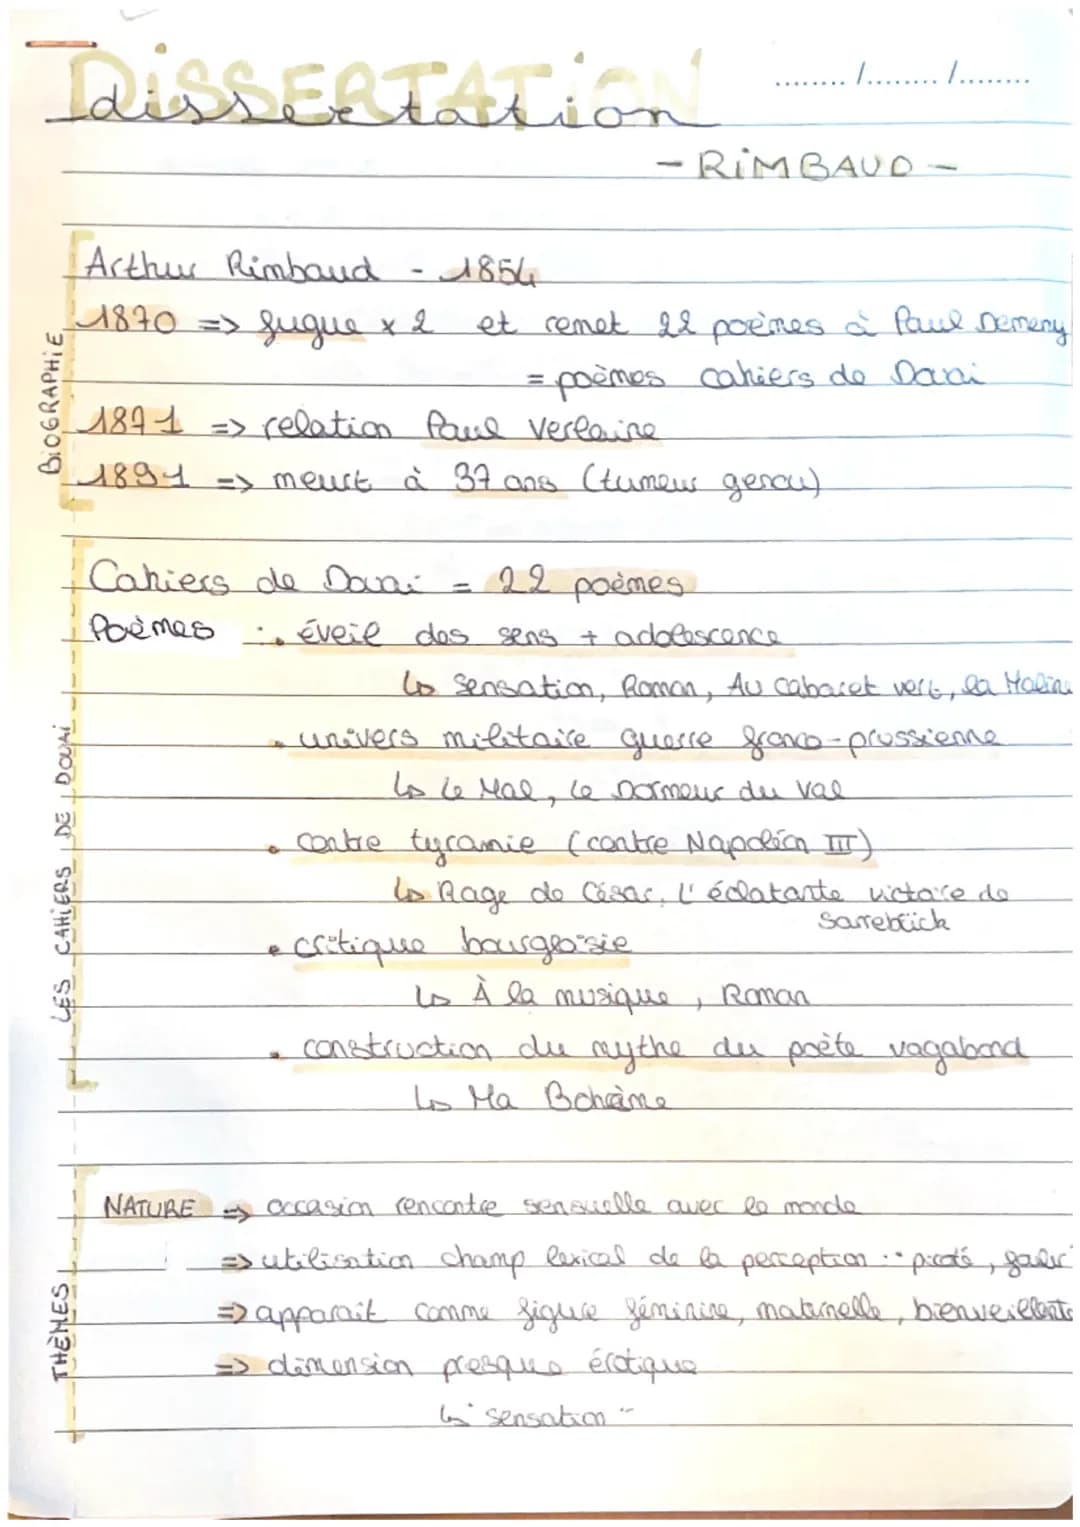 DISSERTATION
dissertation
......../......../........
- RIMBAUD -
BIOGRAPHIE
Arthur Rimbaud - 1854
1870 => fugue x 2 et remet 22 poèmes à Paul Demeny
= poèmes cahiers de Douai
1871 => relation Paul Verlaine
1891 => meurt à 37 ans (tumeur genou)
LES CAHIERS DE DOUAI
Cahiers de Douai = 22 poèmes
Poèmes : • éveil des sens + adolescence
↳ Sensation, Roman, Au cabaret vert, la Maline
• univers militaire guerre franco-prussienne
↳ Le Mal, Le Dormeur du Val
• contre tyrannie (contre Napoléon III)
↳ Rage de César, L'éclatante victoire de
Sarrebrück
• critique bourgeoisie
↳ À la musique, Roman
• construction du mythe du poète vagabond
↳ Ma Bohème
THÈMES
NATURE => occasion rencontre sensuelle avec le monde
=> utilisation champ lexical de la perception : picoté,
=> apparait comme figure féminine, maternelle, bienveillante
=> dimension presque érotique
↳ "sensation"